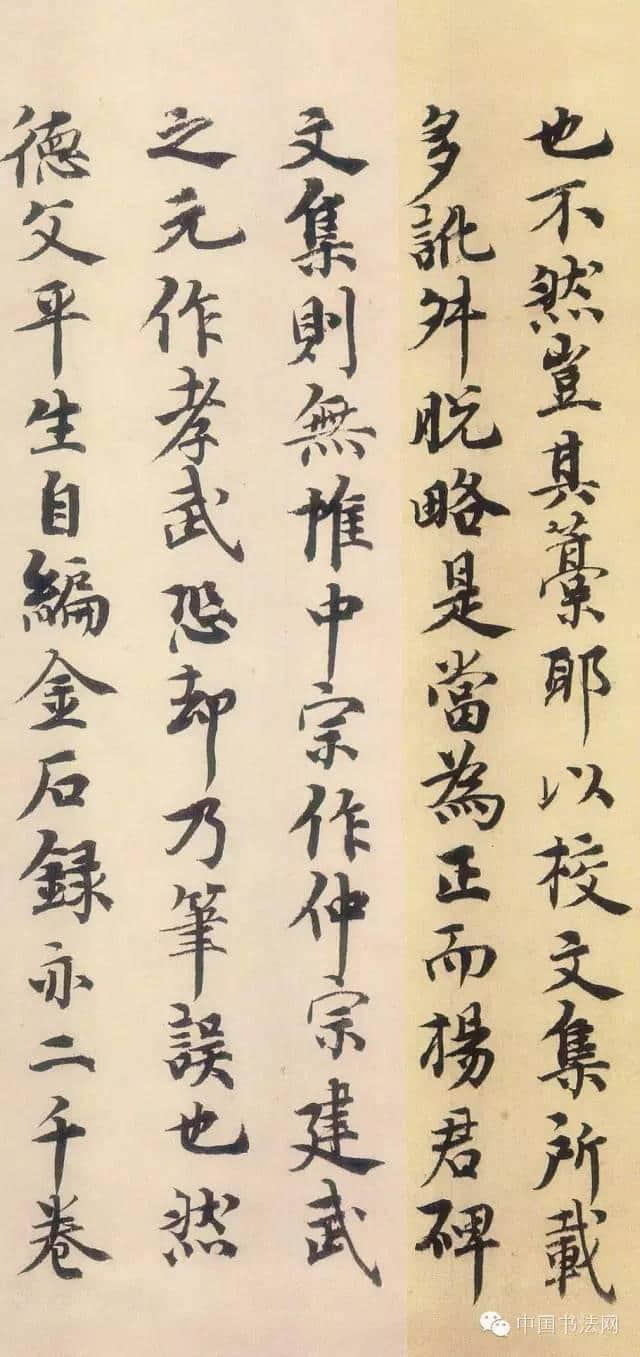 也不然豈其藁耶以校文集所載
多訛舛脱略是當為正而楊君碑
文集則無惟中宗作仲宗建武
之元作孝武恐却乃筆誤也然
德父平生自編金石録亦二千卷
中国书法网